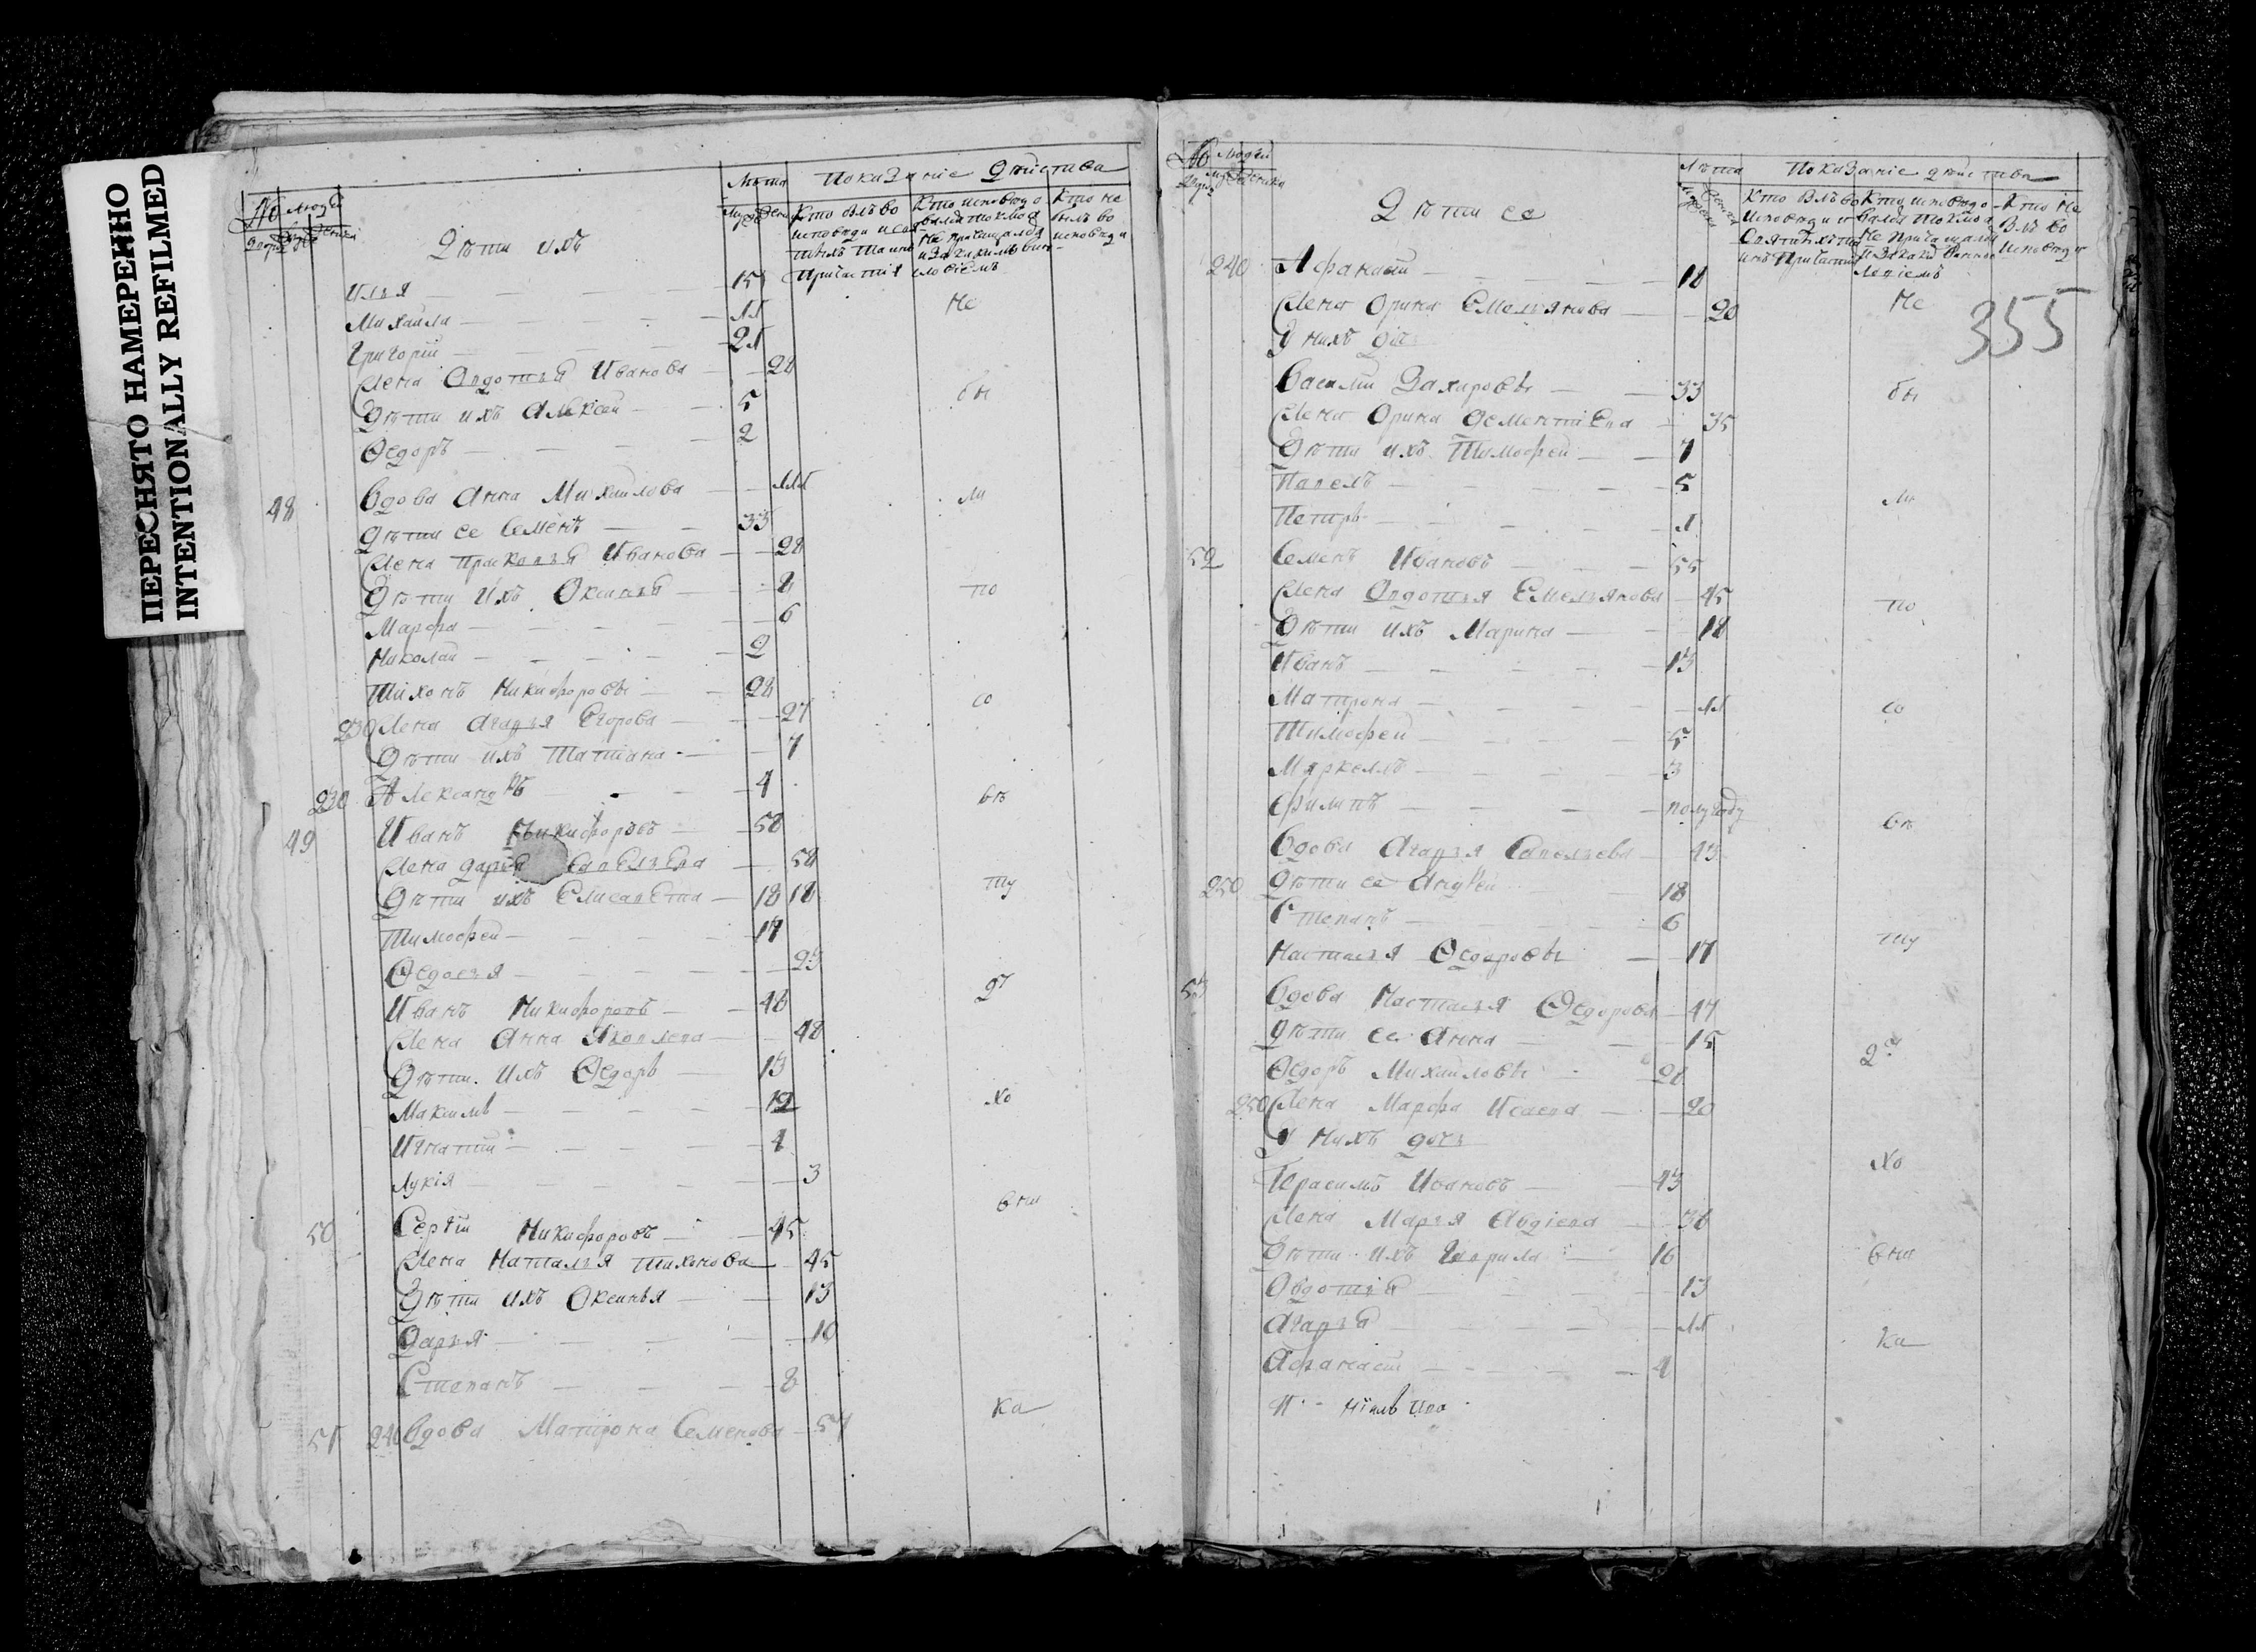 ПЕРЕСНЯТО НАМЕРЕННО
INTENTIONALLY REFILMED
№ людей
Лѣта Показание действа
Кто былъ во исповеди и Святыхъ Таинъ причастия
Кто исповедовался токмо а не причащался и за какимъ винословиемъ
Кто не былъ во исповеди
Дѣти ихъ
Илья 15
Михаила 11
Григорій 21
Жена Овдотья Иванова 28
Дѣти ихъ Алексей 5
Ѳедоръ 2
48 Вдова Анна Михаилова
Дѣти ее Семенъ 33
Жена Прасковья Иванова 28
Дѣти ихъ Оксинья 8
Марфа 6
Николай 2
Тихонъ Никифоровъ 28
230 Жена Агафья Егорова 27
Дѣти ихъ Татіана 7
230 Александръ 4
49 Иванъ Никифоровъ 58
Жена Дарья Савельева 58
Дѣти ихъ Елисавета 18 18
Тимофей 17
Ѳедосья 23
Иванъ Никифоровъ 48
Жена Анна Яковлева 48
Дѣти ихъ Ѳедоръ 13
Максимъ 12
Игнатій 4
Лукія 3
50 Сергій Никифоровъ 45
Жена Наталья Тихонова 45
Дѣти ихъ Оксинья 13
Дарья 10
Степанъ 8
51 240 Вдова Матрона Семенова 57
не
бы
ли
по
со
бъ
ту
хо
вни
ка
№ людей
Лѣта Показаніе действа
Кто былъ во исповеди и Святыхъ Таинъ причастия
Кто исповедовался токмо а не причащался и за какимъ винословиемъ
Кто не былъ во исповеди
355
Дѣти ее
240 Афанасий 18
Жена Орина Емельянова 20
У нихъ
Василій Захаровъ 33
Жена Орина Дементіева 35
Дѣти ихъ Тимофей 7
Павелъ 5
Петръ 1
52 Семенъ Ивановъ 55
Жена Овдотья Емельянова 45
Дѣти ихъ Марина 18
Иванъ 13
Матрона 11
Тимофей 5
Маркелъ 3
Филипъ полугоду
Вдова Агафья Савельева 43
250 Дѣти ее Андрей 18
Степанъ 6
Настасья Ѳедоровъ 17
53 Вдова Настасья Ѳедорова 47
Дѣти ее Анна 15
Ѳедоръ Михаиловъ 21
250 Жена Марфа Исаева 20
У нихъ дочь
Герасимъ Ивановъ 43
Жена Марья Авдіева 38
Дѣти ихъ Гаврила 16
Овдотья 13
Агафья 11
Афанасій 4
не
бы
ли
по
со
бъ
ту
хо
вни
ка